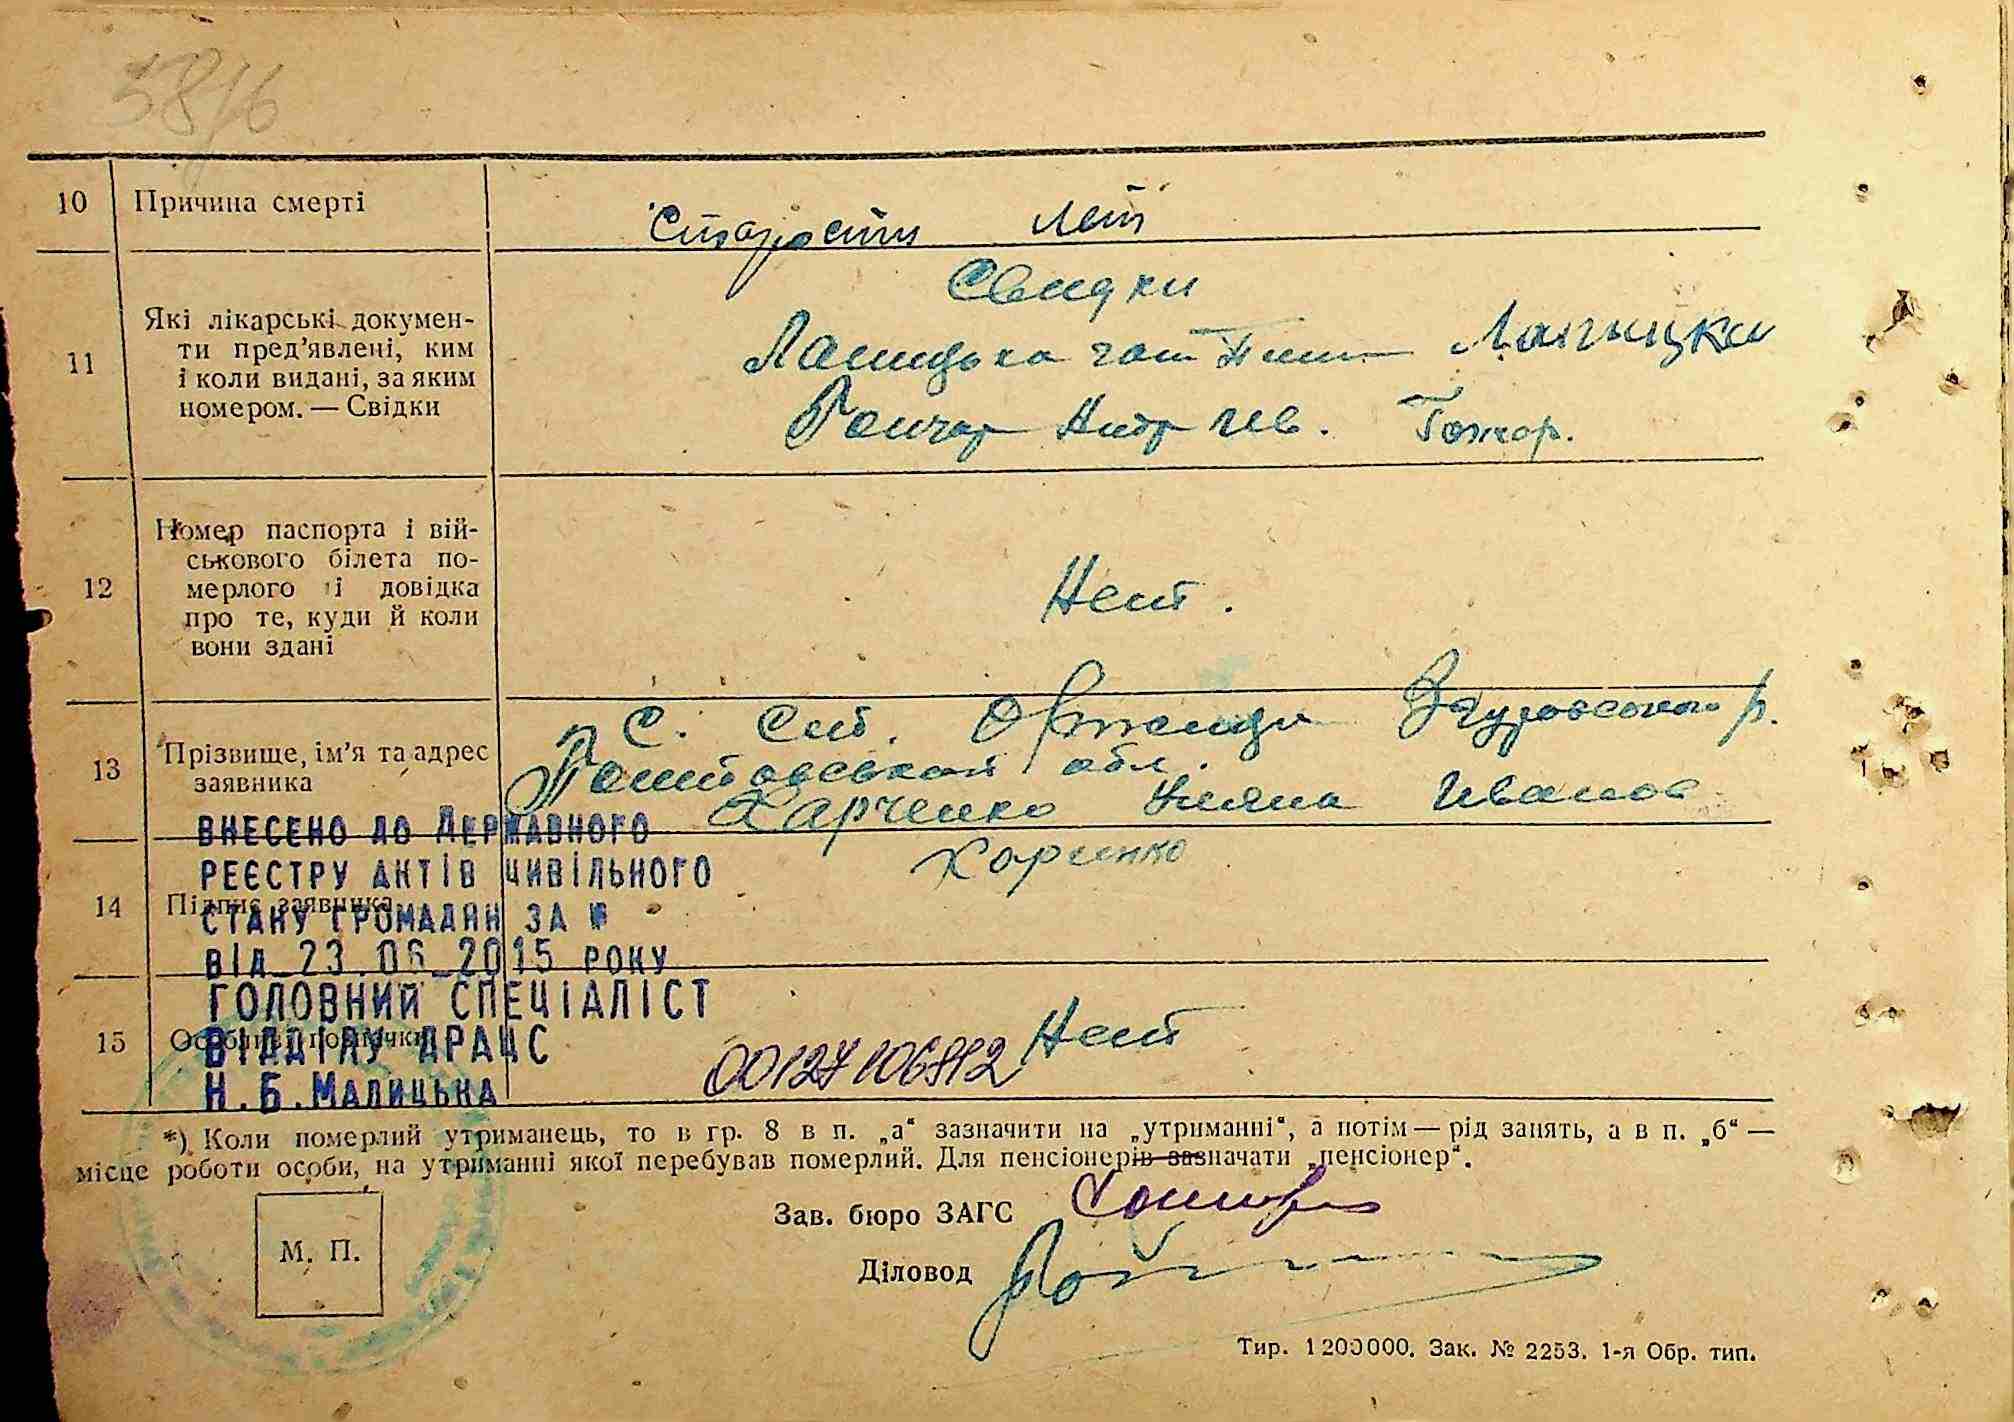 5876
10 Причина смерті
Старости лет
11 Які лікарські докумен-
ти пред’явлені, ким
і коли видані, за яким
номером. — Свідки
Свидки
Гончар Гончар.
12 Номер паспорта і вій-
ськового білета по-
мерлого і довідка
про те, куди й коли
вони здані
Нет.
13 Прізвище, ім’я та адрес
заявника
С. обл.
Харченко Уляна Иванов
14 Підпис заявника
15 Особливі позначки
Нет
00127106812
ВНЕСЕНО ДО ДЕРЖАВНОГО
РЕЄСТРУ АКТІВ ЦИВІЛЬНОГО
СТАНУ ГРОМАДЯН ЗА №
ВІД 23.06.2015 РОКУ
ГОЛОВНИЙ СПЕЦІАЛІСТ
ВІДДІЛУ ДРАЦС
Н.Б.МАЛИЦЬКА
*) Коли померлий утриманець, то в гр. 8 в п. „а“ зазначити на „утриманні“, а потім — рід занять, а в п. „б“ —
місце роботи особи, на утриманні якої перебував померлий. Для пенсіонерів зазначати „пенсіонер“.
М. П.
Зав. бюро ЗАГС
Діловод
Тир. 1200000. Зак. № 2253. 1-я Обр. тип.